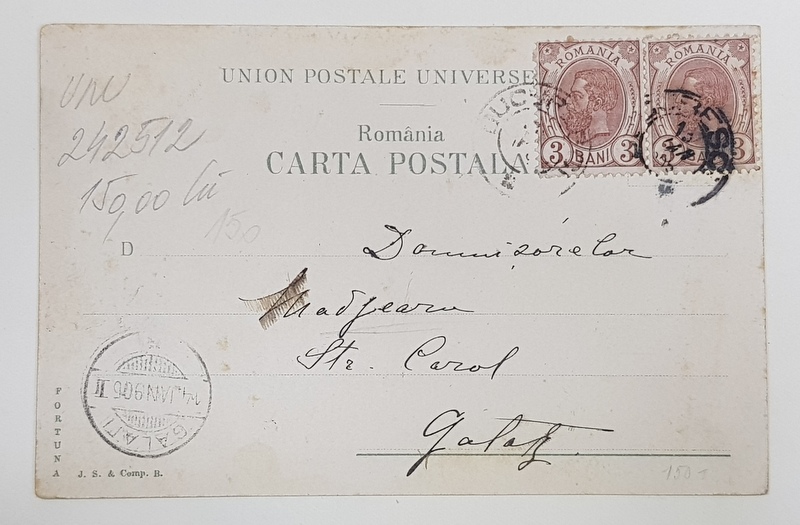 UNION POSTALE UNIVERSE
România
CARTA POSTALA
ROMANIA
3 BANI 3
ROMANIA
BANI 3
242512
150,00 lei
150
D
Domnișorelor
Madjearu
Str. Carol
Galatz
GALATI
14 JAN 906 II
FORTUNA
J. S. & Comp. B.
150